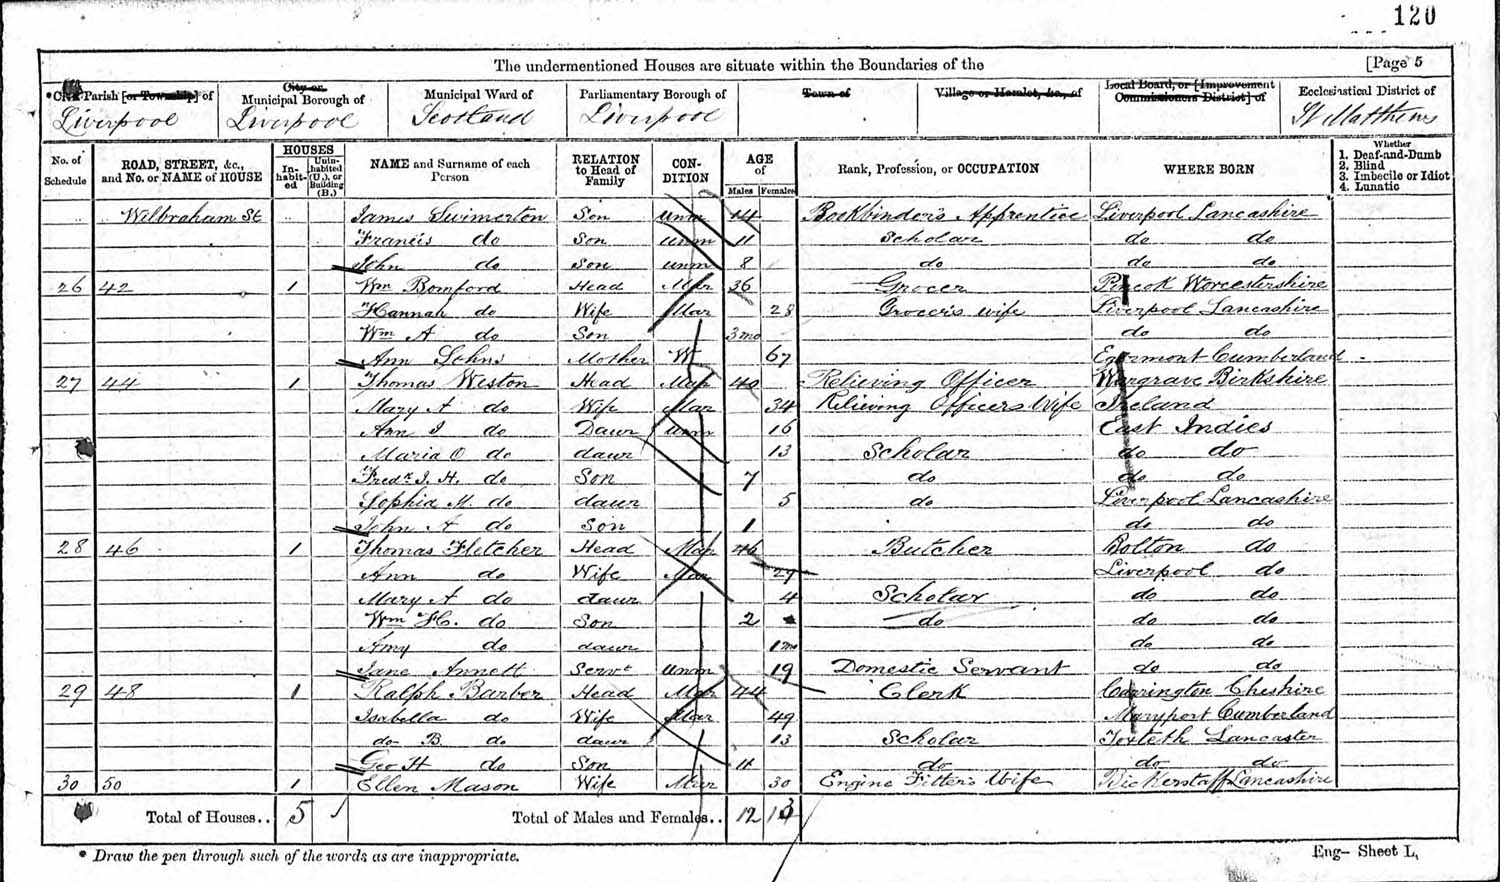 120
The undermentioned Houses are situate within the Boundaries of the [Page 5
Parish [or Township] of City or Municipal Borough of Municipal Ward of Parliamentary Borough of Town of Village or Hamlet, &c., of Local Board, or [Improvement Commissioners District] of Ecclesiastical District of
Liverpool Liverpool Scotland Liverpool St Matthews
No. of Schedule ROAD, STREET, &c., and No. or NAME of HOUSE HOUSES Inhabited Uninhabited (U.), or Building (B.) NAME and Surname of each Person RELATION to Head of Family CONDITION AGE of Males Females Rank, Profession, or OCCUPATION WHERE BORN Whether 1. Deaf-and-Dumb 2. Blind 3. Imbecile or Idiot 4. Lunatic
Wilbraham St James Swimerton Son Unm 14 Bookbinder's Apprentice Liverpool Lancashire
Francis do Son Unm 11 Scholar do do
John do Son Unm 8 do do do
26 42 1 Wm Bomford Head Mar 36 Grocer Worcestershire
Hannah do Wife Mar 28 Grocer's wife Liverpool Lancashire
Wm A do Son 3mo do do
Ann Johns Mother W 67 Egermont Cumberland
27 44 1 Thomas Weston Head Mar 40 Relieving Officer Wargrave Birkshire
Mary A do Wife Mar 34 Relieving Officers Wife Ireland
Ann I do Dawr Unm 16 East Indies
Maria O do dawr 13 Scholar do do
Fredk J. H. do Son 7 do do do
Sophia M. do dawr 5 do Liverpool Lancashire
John A do Son 1 do do
28 46 1 Thomas Fletcher Head Mar 46 Butcher Bolton do
Ann do Wife Mar 29 Liverpool do
Mary A do dawr 4 Scholar do do
Wm H. do Son 2 do do do
Amy do dawr 1mo do do
Jane Annett Servt Unm 19 Domestic Servant do do
29 48 1 Ralph Barber Head Mar 44 Clerk Carrington Cheshire
Isabella do Wife Mar 49 Maryport Cumberland
do B. do dawr 13 Scholar Toxteth Lancaster
Geo H do Son 11 do do do
30 50 1 Ellen Mason Wife Mar 30 Engine Fitter's Wife Bickerstaff Lancashire
Total of Houses.. 5 Total of Males and Females.. 12 13
* Draw the pen through such of the words as are inappropriate.
Eng— Sheet L.